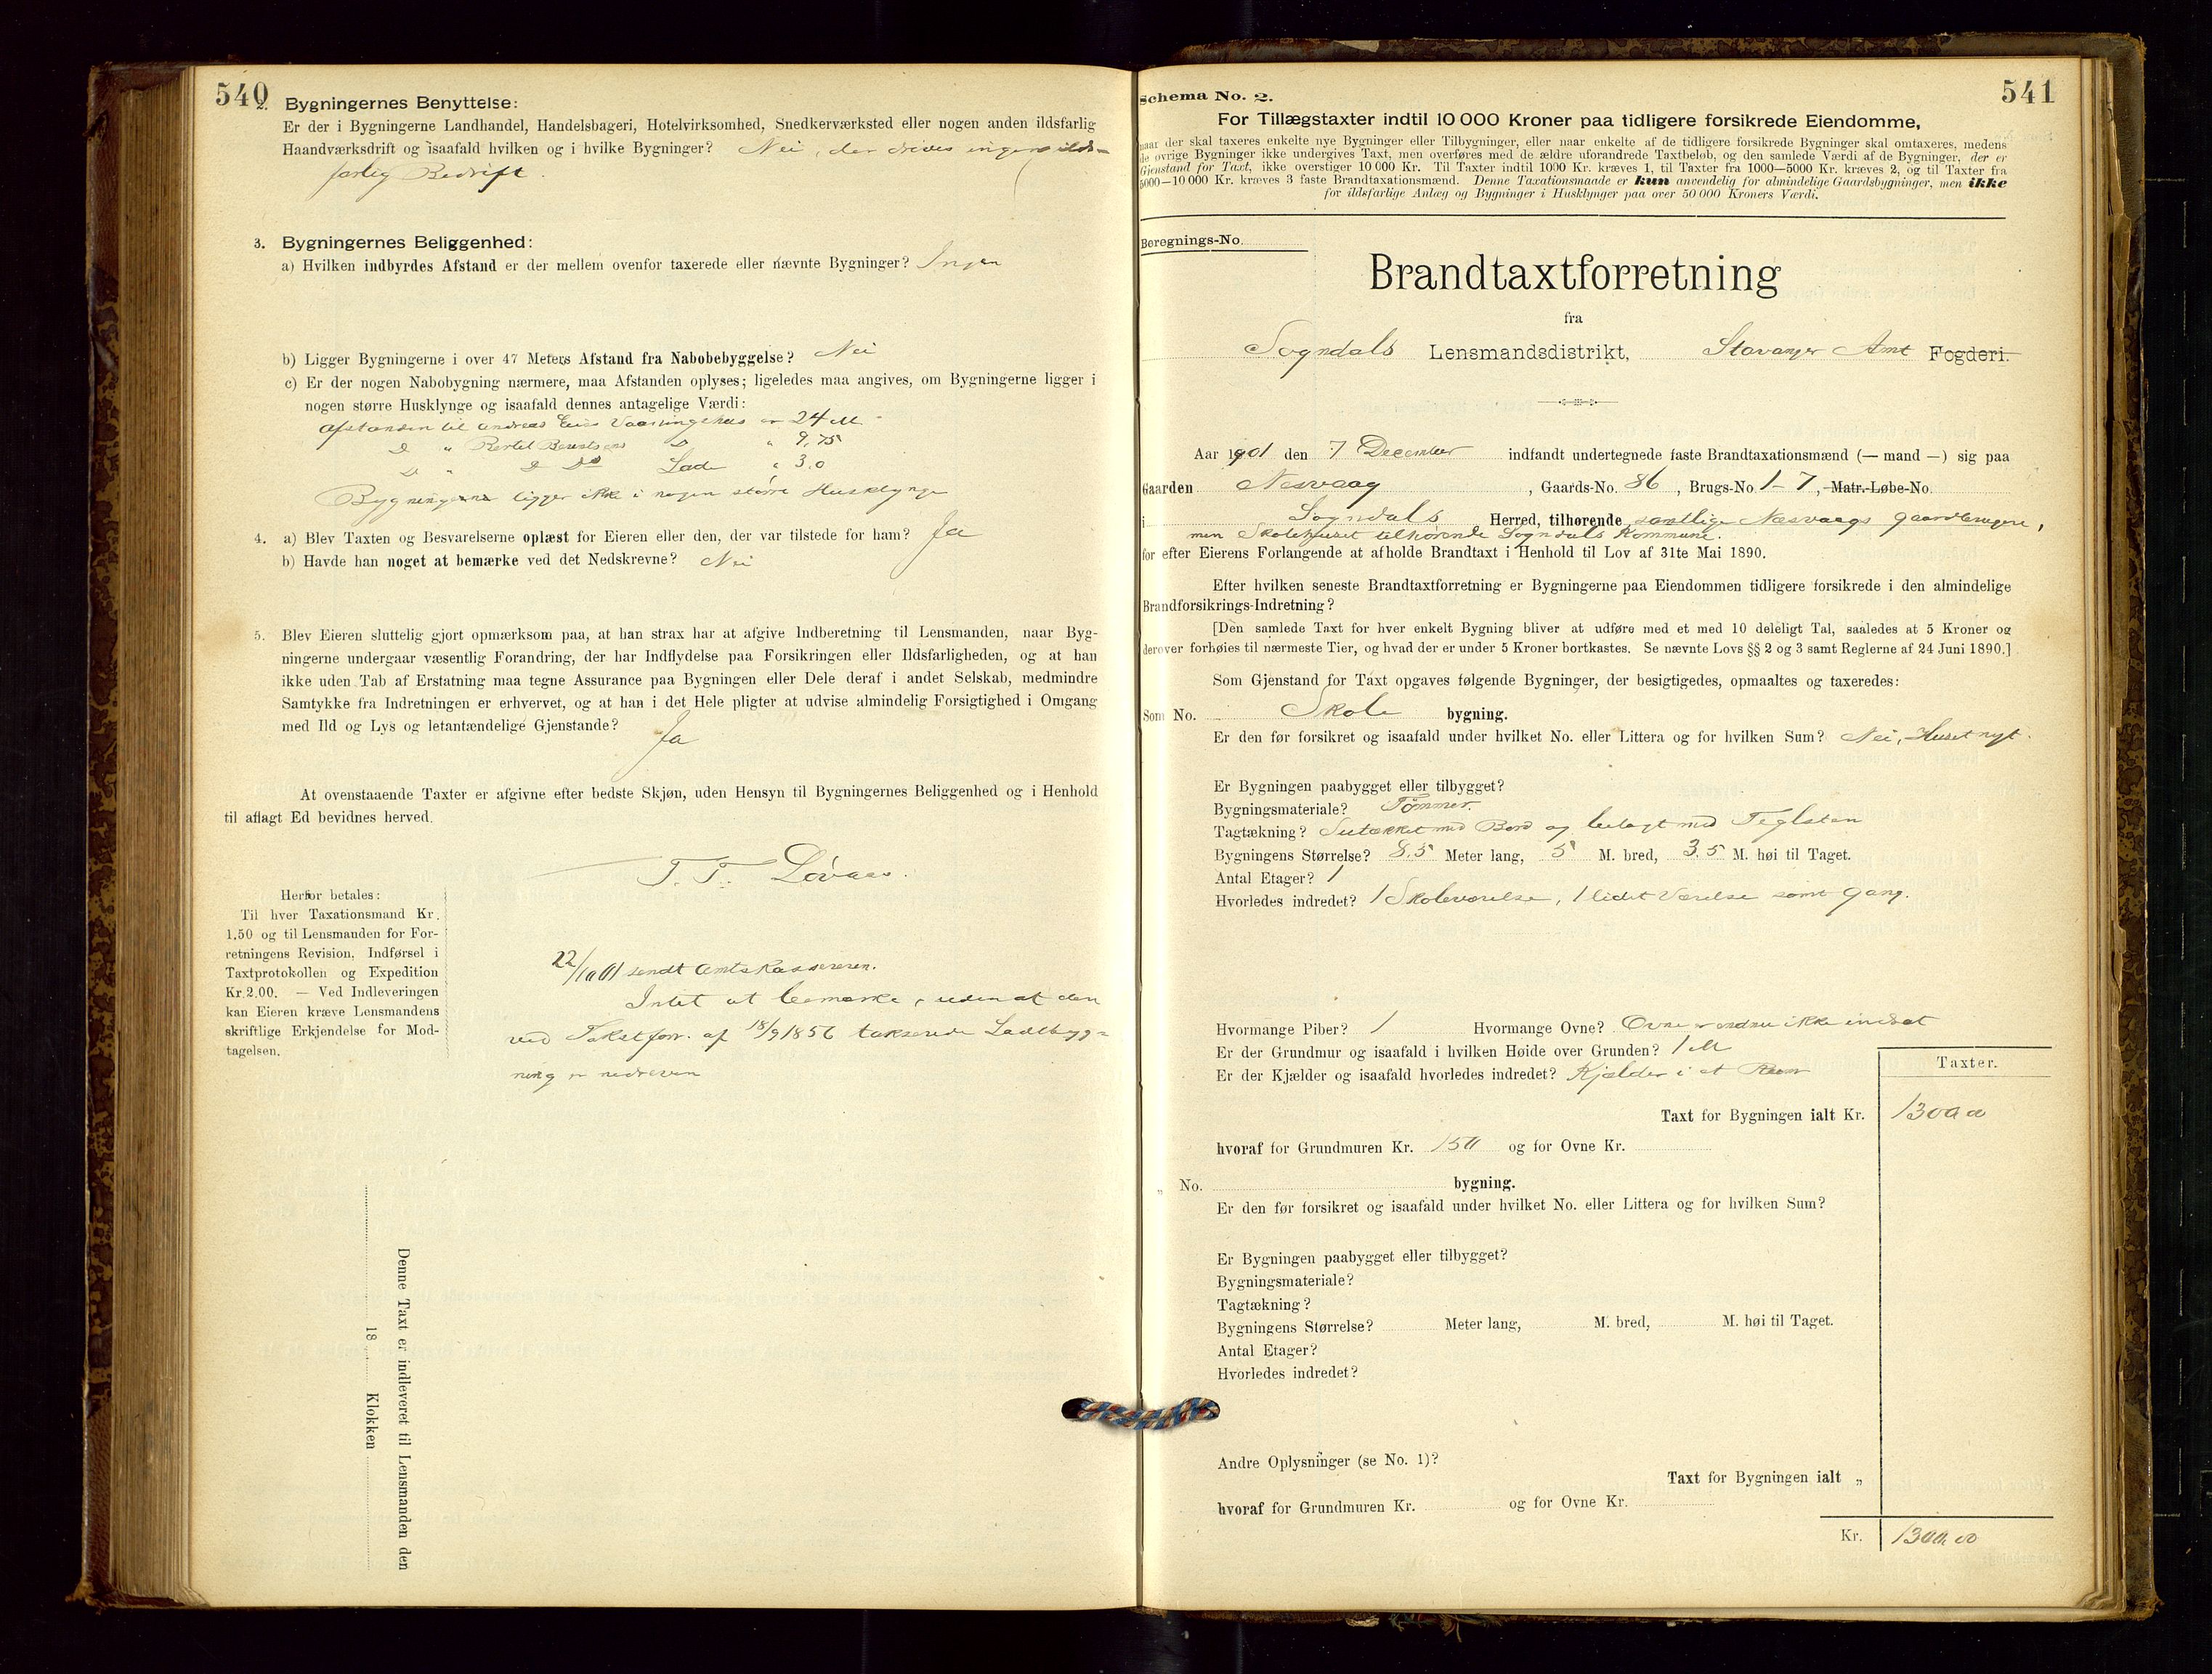 540
2. Bygningernes Benyttelse:
Er der i Bygningerne Landhandel, Handelsbageri, Hotelvirksomhed, Snedkerværksted eller nogen anden ildsfarlig
Haandværksdrift og isaafald hvilken og i hvilke Bygninger? Nei, der drives ingen ilds=
farlig Bedrift.
3. Bygningernes Beliggenhed:
a) Hvilken indbyrdes Afstand er der mellem ovenfor taxerede eller nævnte Bygninger? Ingen
b) Ligger Bygningerne i over 47 Meters Afstand fra Nabobebyggelse? Nei
c) Er der nogen Nabobygning nærmere, maa Afstanden oplyses; ligeledes maa angives, om Bygningerne ligger i
nogen større Husklynge og isaafald dennes antagelige Værdi:
Afstanden til Andreas Vaaningshus er 24 M.
D " Bertel D " 9,75
D " D Do Lade " 3,0
Bygningerne ligger ikke i nogen større Husklynge
4. a) Blev Taxten og Besvarelserne oplæst for Eieren eller den, der var tilstede for ham? Ja
b) Havde han noget at bemærke ved det Nedskrevne? Nei
5. Blev Eieren sluttelig gjort opmærksom paa, at han strax har at afgive Indberetning til Lensmanden, naar Byg-
ningerne undergaar væsentlig Forandring, der har Indflydelse paa Forsikringen eller Ildsfarligheden, og at han
ikke uden Tab af Erstatning maa tegne Assurance paa Bygningen eller Dele deraf i andet Selskab, medmindre
Samtykke fra Indretningen er erhvervet, og at han i det Hele pligter at udvise almindelig Forsigtighed i Omgang
med Ild og Lys og letantændelige Gjenstande? Ja
At ovenstaaende Taxter er afgivne efter bedste Skjøn, uden Hensyn til Bygningernes Beliggenhed og i Henhold
til aflagt Ed bevidnes herved.
T. T. Løvaas.
Herfor betales:
Til hver Taxationsmand Kr.
1,50 og til Lensmanden for For-
retningens Revision, Indførsel i
Taxtprotokollen og Expedition
Kr. 2.00. — Ved Indleveringen
kan Eieren kræve Lensmandens
skriftlige Erkjendelse for Mod-
tagelsen.
22/10 01 sendt Amtskassereren.
Intet at bemærke, uden at den
ved Takstforr. af 18/9 1856 takserede Ladebyg=
ning er nedreven
Denne Taxt er indleveret til Lensmanden den
18 Klokken
541
Schema No. 2.
For Tillægstaxter indtil 10 000 Kroner paa tidligere forsikrede Eiendomme,
naar der skal taxeres enkelte nye Bygninger eller Tilbygninger, eller naar enkelte af de tidligere forsikrede Bygninger skal omtaxeres, medens
de øvrige Bygninger ikke undergives Taxt, men overføres med de ældre uforandrede Taxtbeløb, og den samlede Værdi af de Bygninger, der er
Gjenstand for Taxt, ikke overstiger 10 000 Kr. Til Taxter indtil 1000 Kr. kræves 1, til Taxter fra 1000—5000 Kr. kræves 2, og til Taxter fra
5000—10 000 Kr. kræves 3 faste Brandtaxationsmænd. Denne Taxationsmaade er kun anvendelig for almindelige Gaardsbygninger, men ikke
for ildsfarlige Anlæg og Bygninger i Husklynger paa over 50 000 Kroners Værdi.
Beregnings-No.
Brandtaxtforretning
fra
Sogndals Lensmandsdistrikt, Stavanger Amt Fogderi.
Aar 1901 den 7 December indfandt undertegnede faste Brandtaxationsmænd (— mand —) sig paa
Gaarden Nesvaag, Gaards-No. 86, Brugs-No. 1-7, Matr.-Løbe-No.
i Sogndals Herred, tilhørende samtlige Nesvaags gaardbrugere,
men Skolehuset tilhørende Sogndals Kommune.
for efter Eierens Forlangende at afholde Brandtaxt i Henhold til Lov af 31te Mai 1890.
Efter hvilken seneste Brandtaxtforretning er Bygningerne paa Eiendommen tidligere forsikrede i den almindelige
Brandforsikrings-Indretning?
[Den samlede Taxt for hver enkelt Bygning bliver at udføre med et med 10 deleligt Tal, saaledes at 5 Kroner og
derover forhøies til nærmeste Tier, og hvad der er under 5 Kroner bortkastes. Se nævnte Lovs §§ 2 og 3 samt Reglerne af 24 Juni 1890.]
Som Gjenstand for Taxt opgaves følgende Bygninger, der besigtigedes, opmaaltes og taxeredes:
Som No. Skole bygning.
Er den før forsikret og isaafald under hvilket No. eller Littera og for hvilken Sum? Nei, Huset nyt.
Er Bygningen paabygget eller tilbygget?
Bygningsmateriale? Tømmer.
Tagtækning? med Bord og belagt med Teglsten
Bygningens Størrelse? 8.5 Meter lang, 5 M. bred, 3.5 M. høi til Taget.
Antal Etager? 1
Hvorledes indredet? 1 Skoleværelse, 1 lidet Værelse samt gang.
Hvormange Piber? 1 Hvormange Ovne? Ovne er endnu ikke indsat
Er der Grundmur og isaafald i hvilken Høide over Grunden? 1 M
Er der Kjælder og isaafald hvorledes indredet? Kjælder i et Rum
Taxter.
Taxt for Bygningen ialt Kr. 1300 00
hvoraf for Grundmuren Kr. 150 og for Ovne Kr.
„ No. bygning.
Er den før forsikret og isaafald under hvilket No. eller Littera og for hvilken Sum?
Er Bygningen paabygget eller tilbygget?
Bygningsmateriale?
Tagtækning?
Bygningens Størrelse? Meter lang, M. bred, M. høi til Taget.
Antal Etager?
Hvorledes indredet?
Andre Oplysninger (se No. 1)?
Taxt for Bygningen ialt „
hvoraf for Grundmuren Kr. og for Ovne Kr.
Kr. 1300.00